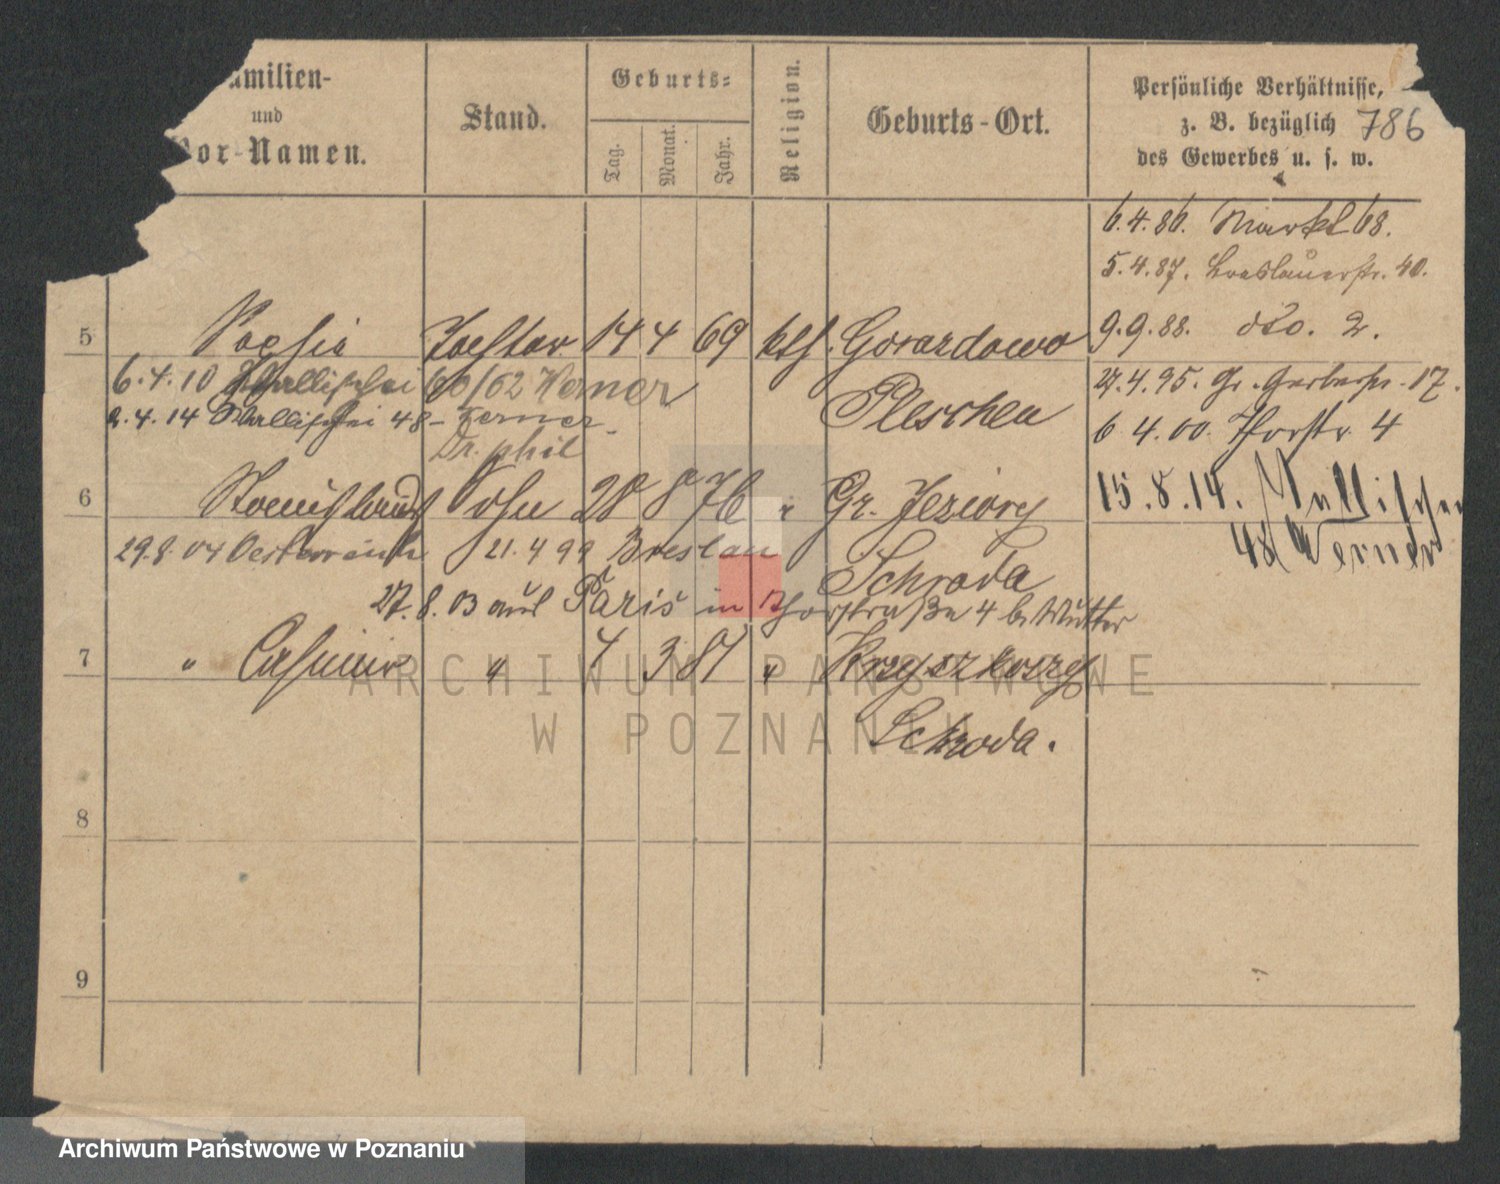 Familien-
und
Vor-Namen.
Stand.
Geburts-
Tag.
Monat.
Jahr.
Religion.
Geburts-Ort.
Persönliche Verhältnisse,
z. B. bezüglich
des Gewerbes u. s. w.
786
6.4.86. Markt 68.
5.4.87. Breslauerstr. 40.
5 Sophie Tochter 14 4 69 kth. Gorazdowo
9.9.88. dto. 2.
6.4.10 60/62 Werner
Pleschen
27.4.95. Gr. Gerberstr. 17.
2.4.14 48 Werner
6.4.00. Thorstr. 4
Dr. phil
6 Stanislaus Sohn 28 8 76 " Gr. Jeziory
15.8.14.
48 Werner
29.8.04 Oesterreich 21.4.99 Breslau
Schroda
27.8.03 aus Paris in Thorstraße 4 b. Mutter
7 " Casimir " 4 3 81 " Krzyszkoszy
Schroda.
8
9
ARCHIWUM PAŃSTWOWE
W POZNANIU
Archiwum Państwowe w Poznaniu